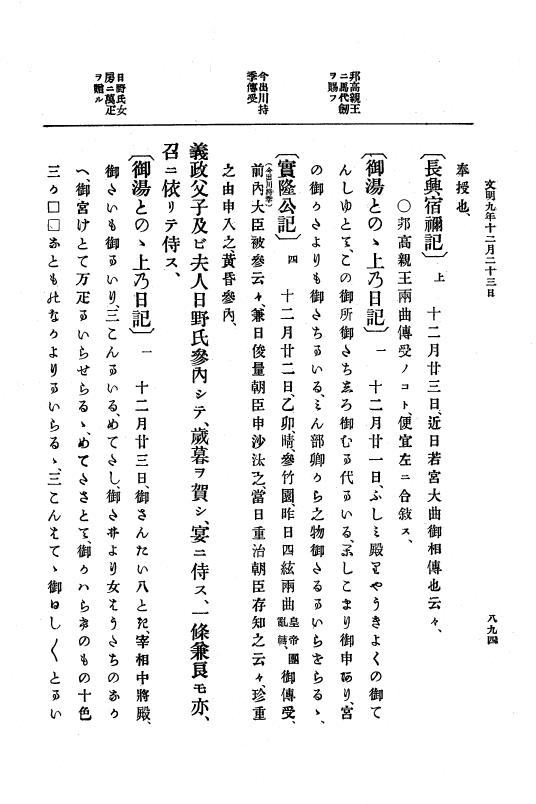 文明九年十二月二十三日
八九四
邦高親王
ニ馬代劒
ヲ賜フ
今出川持
季傳受
日野氏女
房ニ萬疋
ヲ贈ル
奉授也、
〔長興宿禰記〕上 十二月廿三日、近日若宮大曲御相傳也云々、
〇邦高親王兩曲傳受ノコト、便宜左ニ合敍ス、
〔御湯とのゝ上乃日記〕一 十二月廿一日、ふしミ殿やうきよくの御て
んしゆとて、この御所御さちまろ御むま代まいる、しこまり御申あり、宮
の御かさよりも御さちまいる、みん部卿から之物御さるまいらせらるゝ、
〔實隆公記〕四 十二月廿二日、乙卯、晴、參竹園、昨日四絃兩曲皇帝團亂轉、御傳受、
前內大臣(今出川持季)被參云々、兼日俊量朝臣申沙汰之、當日重治朝臣存知之云々、珍重
之由申入之、黃昏參內、
義政父子及ビ夫人日野氏參內シテ、歲暮ヲ賀シ、宴ニ侍ス、一條兼良モ亦、
召ニ依リテ侍ス、
〔御湯とのゝ上乃日記〕一 十二月廿三日、御さんたい八とき、宰相中將殿、
御さいも御まいり、三こんまいる、めてさし、御さ井より女はうさちのおか
へ、御宮けとて万疋まいらせらるゝ、めてささとて、御かハらあのもの十色
三か□□おとも此なかよりまいらるゝ、三こんはてゝ御はしく〳〵とまい